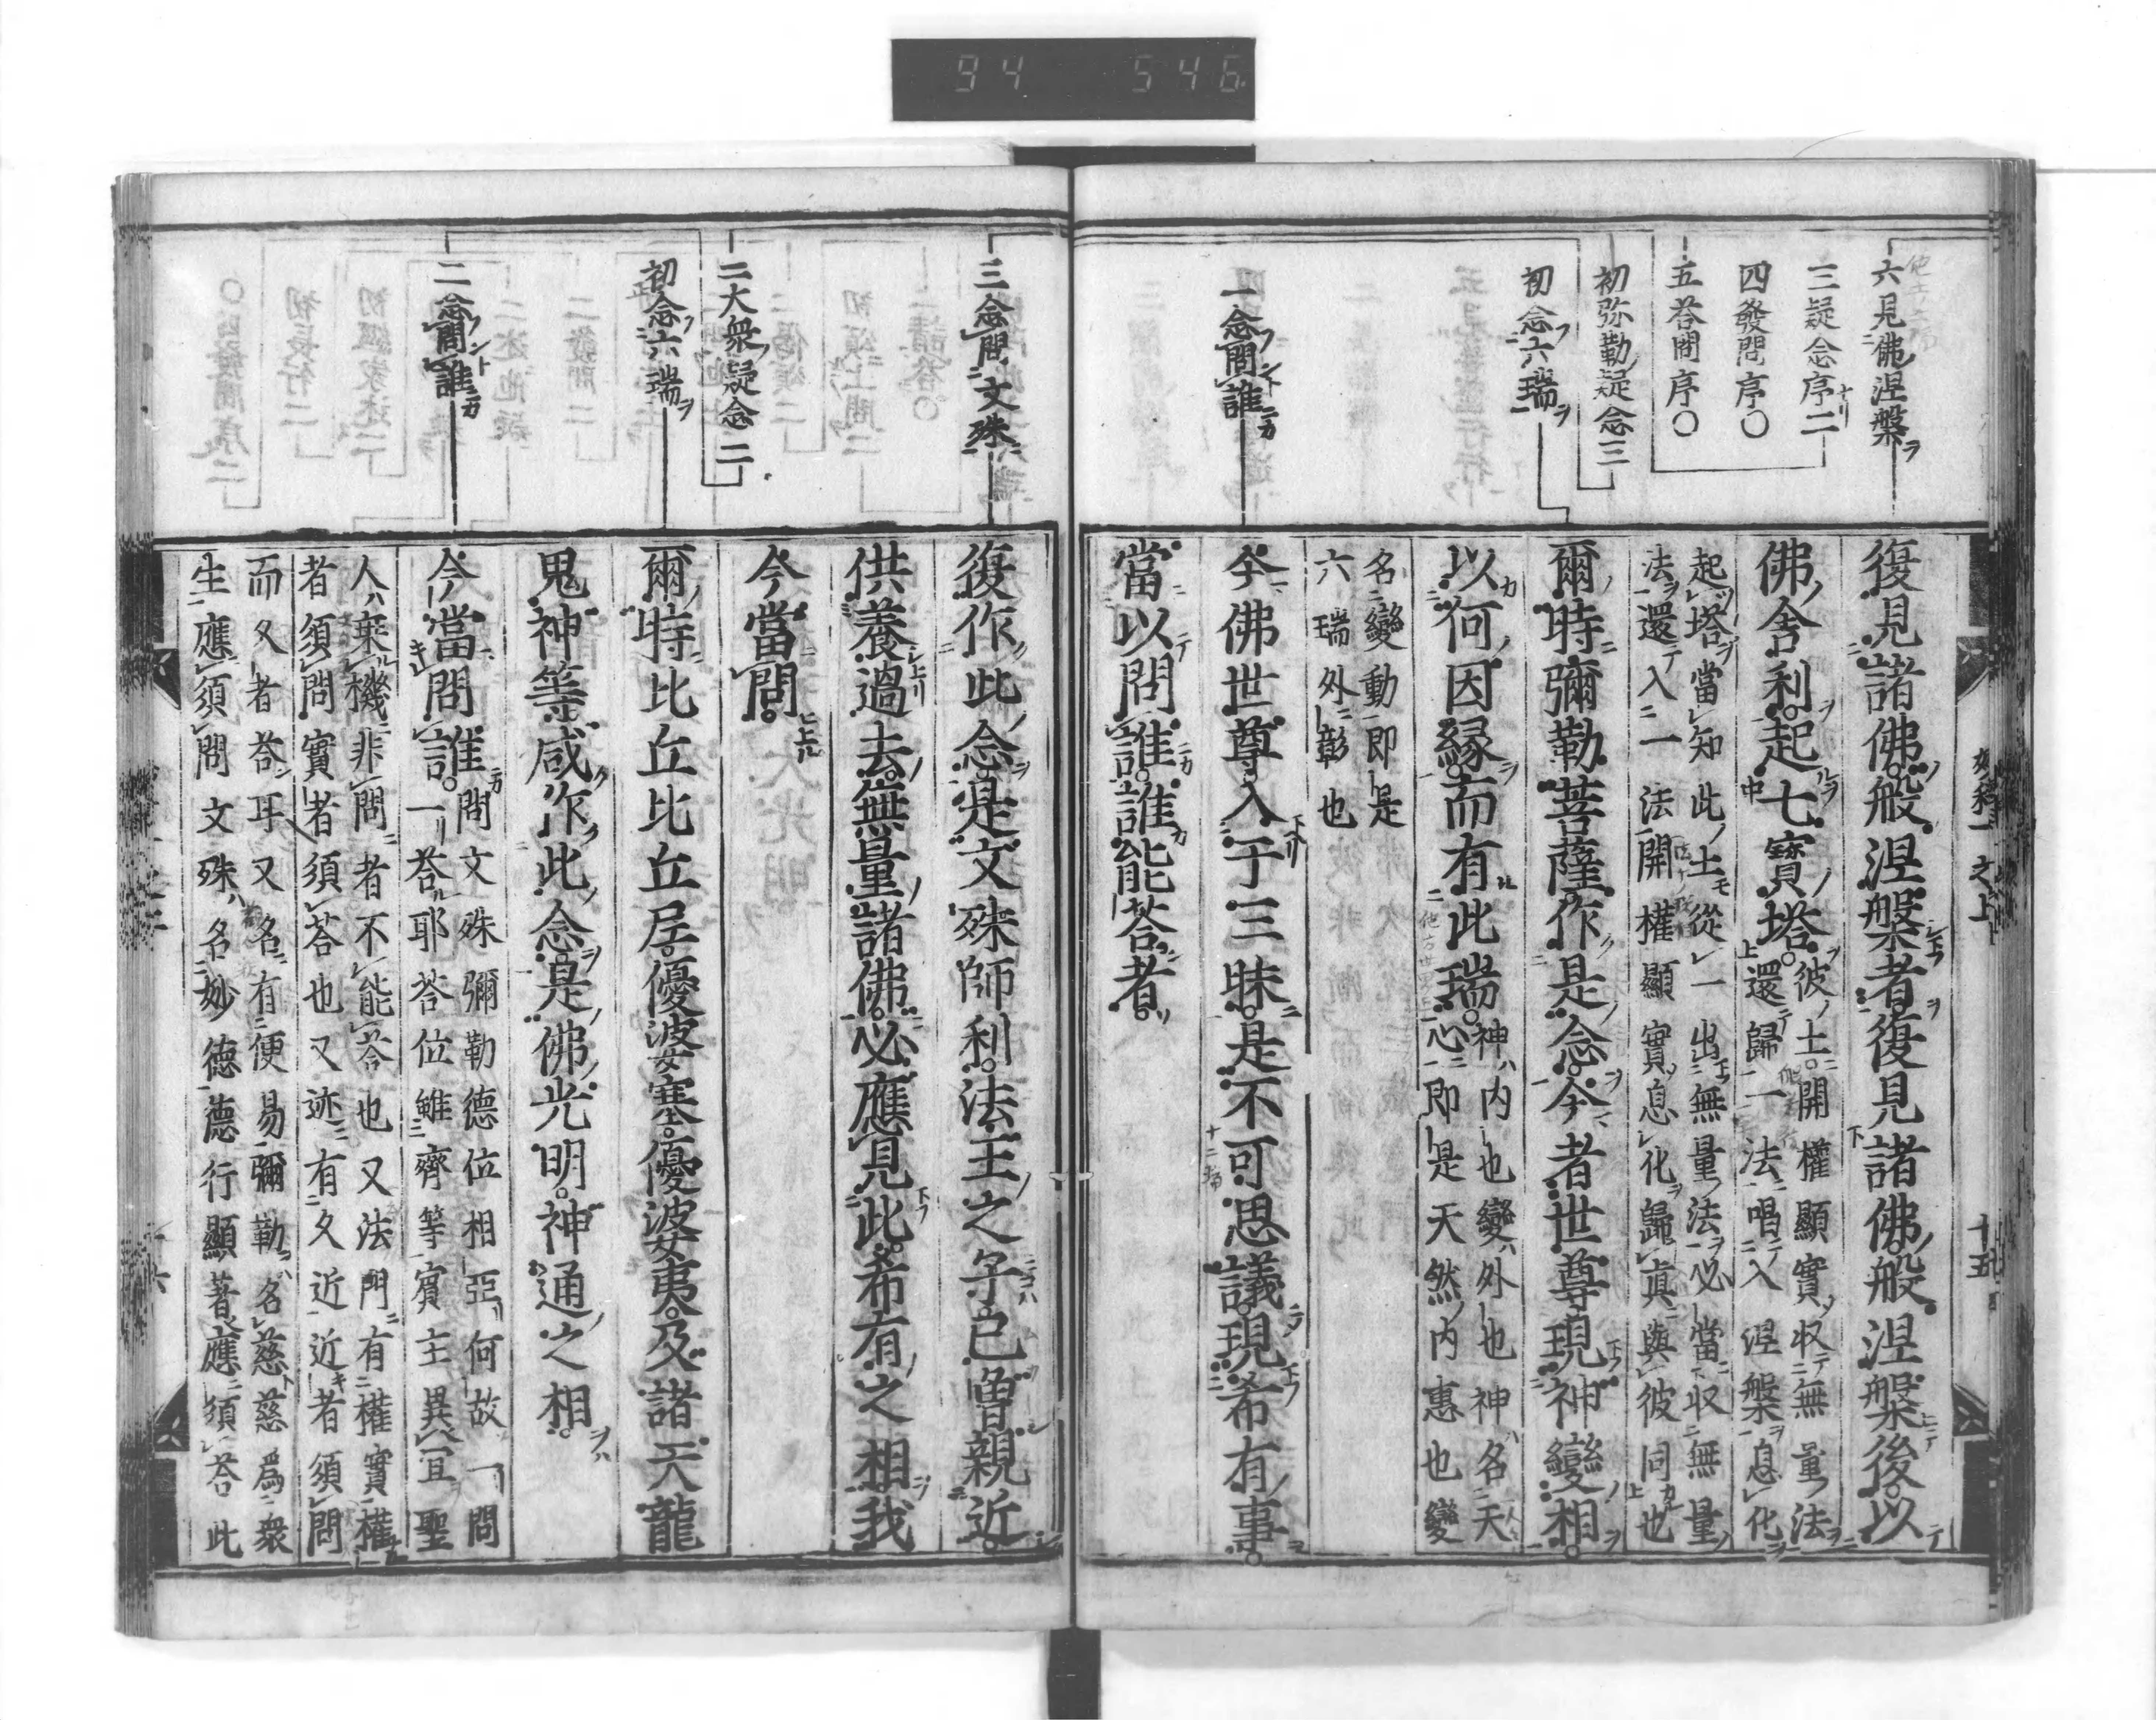 94 546
六見佛涅槃
三疑念序二
四發問序〇
五荅問序〇
初弥勒疑念三
初念六瑞
二念問誰
復見諸佛般涅槃者復見諸佛般涅槃後以
佛舍利起七寶塔
彼土開權顯實収無量法
還歸一法唱入涅槃息化
起塔當知此土從一出無量法必當収無量
法還入一法開權顯實息化歸真與彼同也
爾時彌勒菩薩作是念今者世尊現神變相
以何因緣而有此瑞
神内也變外也神名天
心即是天然内惠也變
名變動即是
六瑞外彰也
今佛世尊入于三昧是不可思議現希有事
當以問誰誰能荅者
妙科一之上
十五
三念問文殊
二大衆疑念二
初念六瑞
二念問誰
復作此念是文殊師利法王之子已曾親近
供養過去無量諸佛必應見此希有之相我
今當問
爾時比丘比丘尼優婆塞優婆夷及諸天龍
鬼神等咸作此念是佛光明神通之相
今當問誰
問文殊彌勒德位相亞何故一問
一荅耶荅位雖齊等賓主異宜聖
人乘機非問者不能荅也又法門有權實權
者須問實者須荅也又迹有久近近者須問
而久者荅耳又名有便易彌勒名慈慈爲衆
生應須問文殊名妙德德行顯著應須荅此